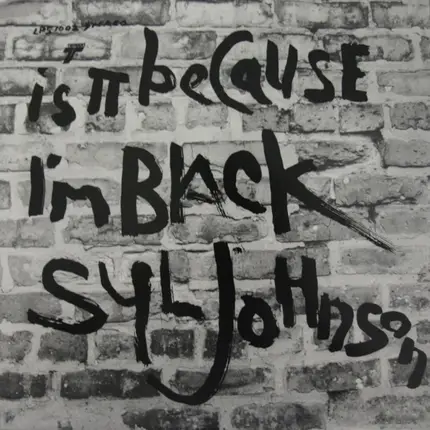 LPS1002 stereo
is iT beCauSE
I'm BlAcK
SyL JoHnson